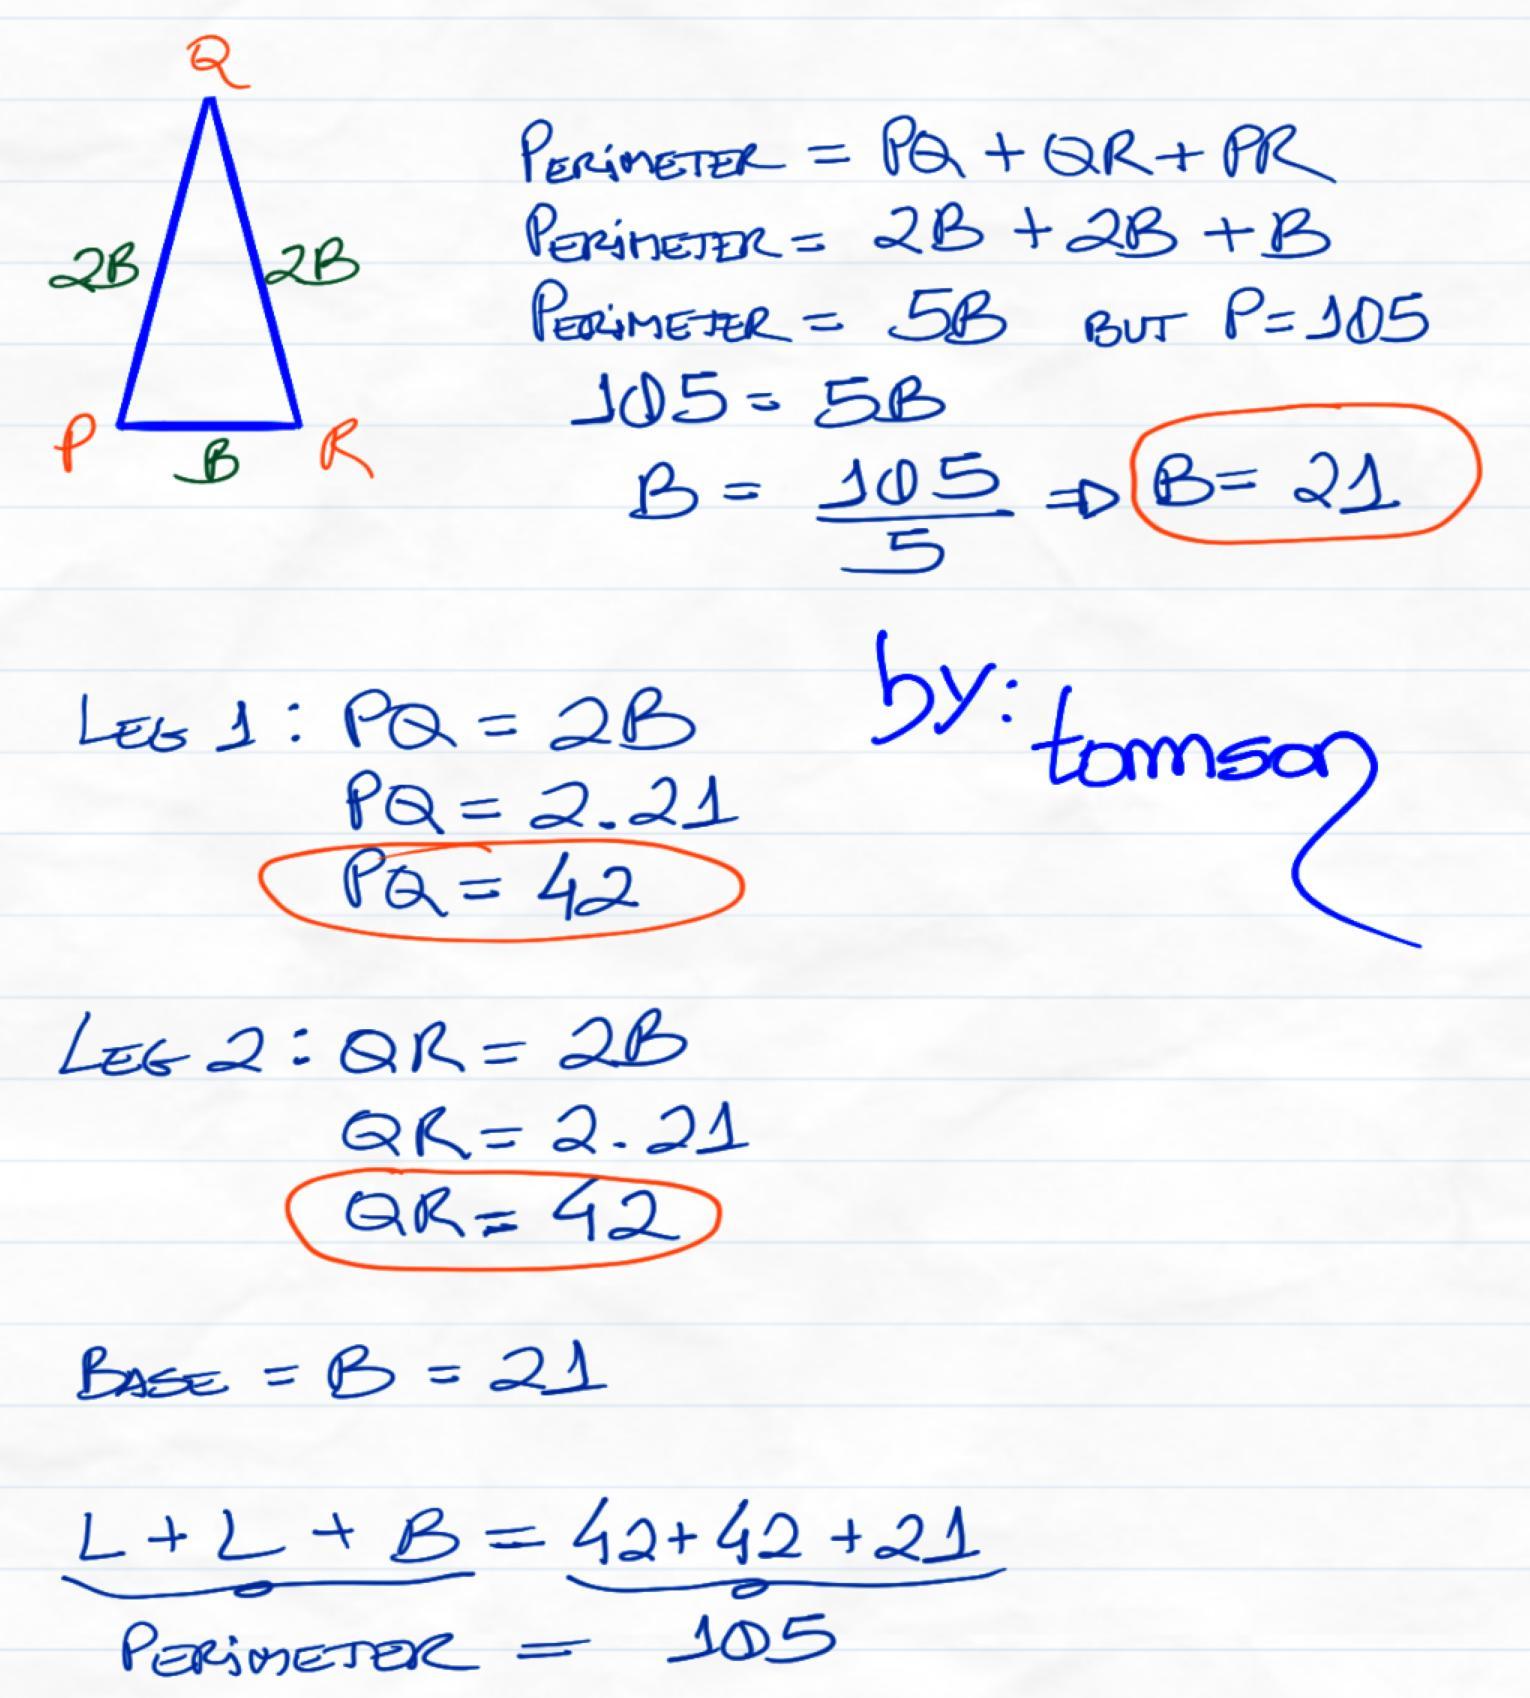 Q
PERIMETER = PQ + QR + PR
PERIMETER = 2B + 2B + B
2B
2B
PERIMETER = 5B BUT P=105
105 = 5B
P
B
R
B = 105/5 ⇒ B = 21
by: tomson
LEG 1 : PQ = 2B
PQ = 2.21
PQ = 42
LEG 2 : QR = 2B
QR = 2.21
QR = 42
BASE = B = 21
L + L + B = 42 + 42 + 21
PERIMETER = 105